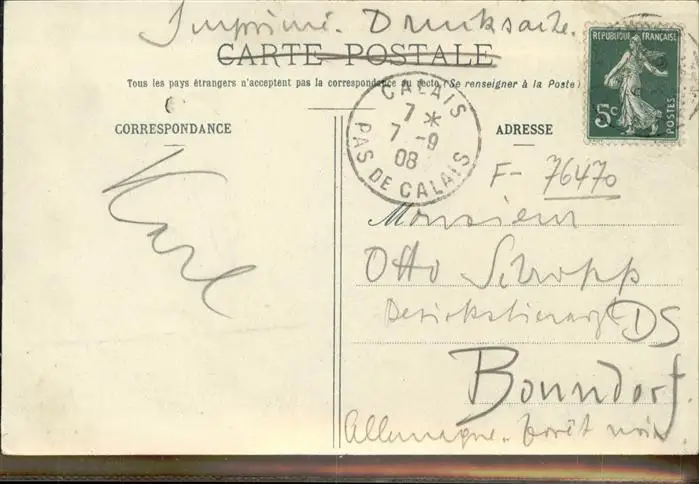 Imprimé. Drucksache.
CARTE POSTALE
Tous les pays étrangers n'acceptent pas la correspondance au recto (Se renseigner à la Poste)
REPUBLIQUE FRANÇAISE
5c
POSTES
CALAIS
7 *
7 -9
08
PAS DE CALAIS
CORRESPONDANCE
ADRESSE
F- 76470
Karl
Monsieur
Otto Schropp
Bezirkstierarzt DS
Bonndorf.
Allemagne. forêt noire